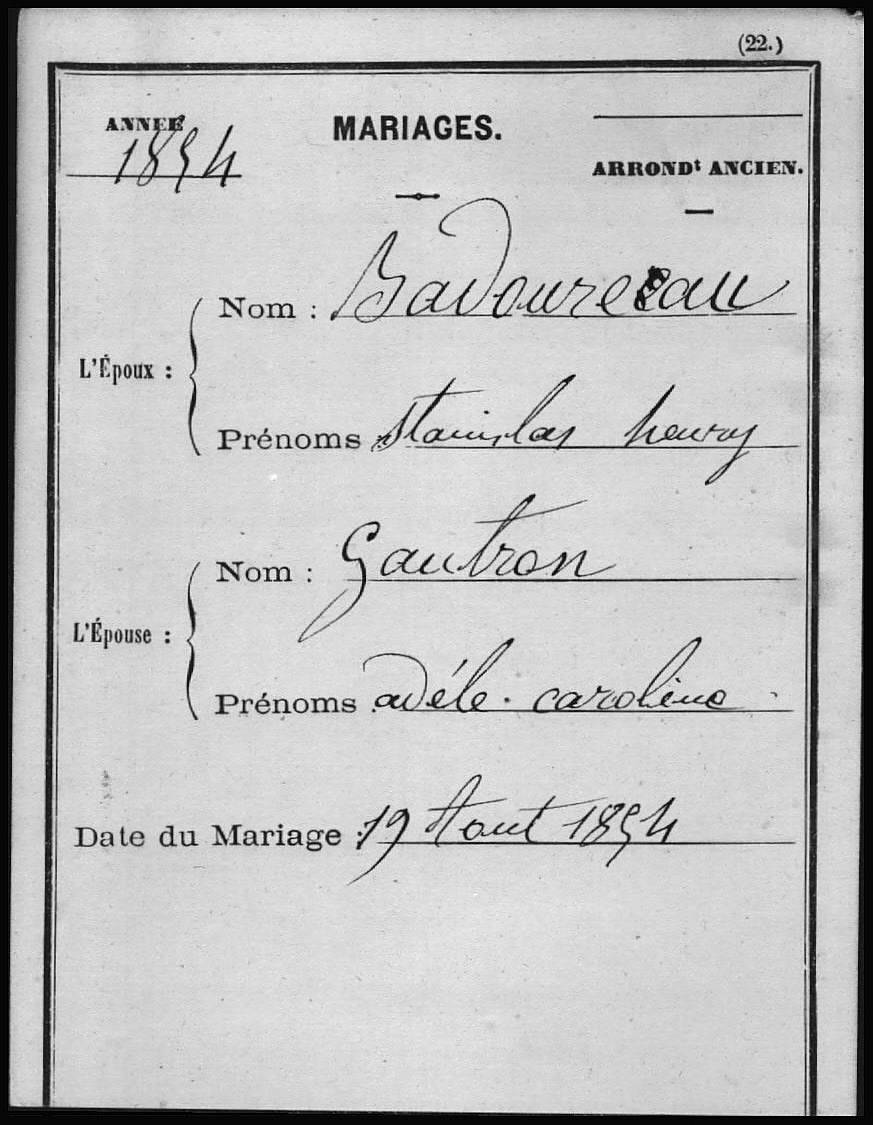 (22.)
ANNÉE
1854
MARIAGES.
ARRONDt ANCIEN.
L'Époux :
Nom : Badoureau
Prénoms Stanislas henry
L'Épouse :
Nom : Gautron
Prénoms adéle. caroline
Date du Mariage : 19 Aout 1854